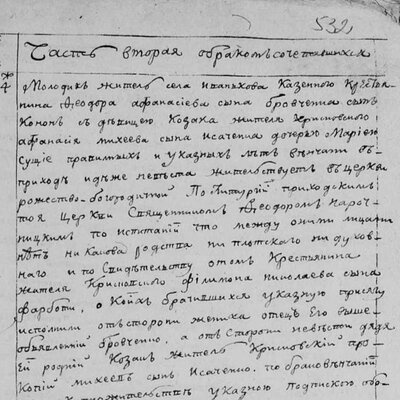 532
Часть вторая о бракомъ сочетавшихся
4 Молодикъ житель села Иванкова казенного крестья
нина Ѳеодора Афанасиева сына Бровченка сынъ
Кононъ съ девицею козака жителя криловского
Афанасия Михеева сына Исаченка дочерью Мариею
сущие правилныхъ и указныхъ летъ венчани въ
приходъ идеже невеста жителствуетъ въ церкви
рожество-богородичной По литургии приходскимъ
тоя церкви священникомъ Ѳеодоромъ
ницкимъ по испытании что между оними лицами
нетъ ни какова родства ни плотскаго ни духов-
наго и по свидетельству о томъ крестьянина
жителя криловского Филимона Николаева сына
о коихъ брачившихся указную присягу
исполнили отъ сторони жениха отецъ его выше
объявленний Бровченко, а отъ сторони невести дядя
ей родний козакъ житель криловский Про-
копий Михеевъ сынъ Исаченко, по браковенчании
указною подпискою обя-